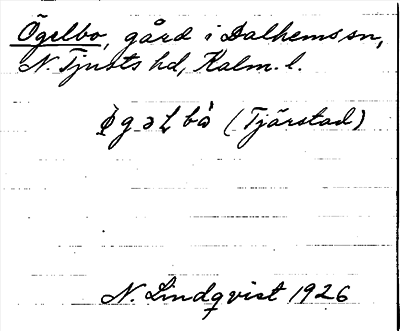 Ögelbo, gård i Dalhems sn,
N Tjusts hd, Kalm. l.
(Tjärstad)
N. Lindqvist 1926